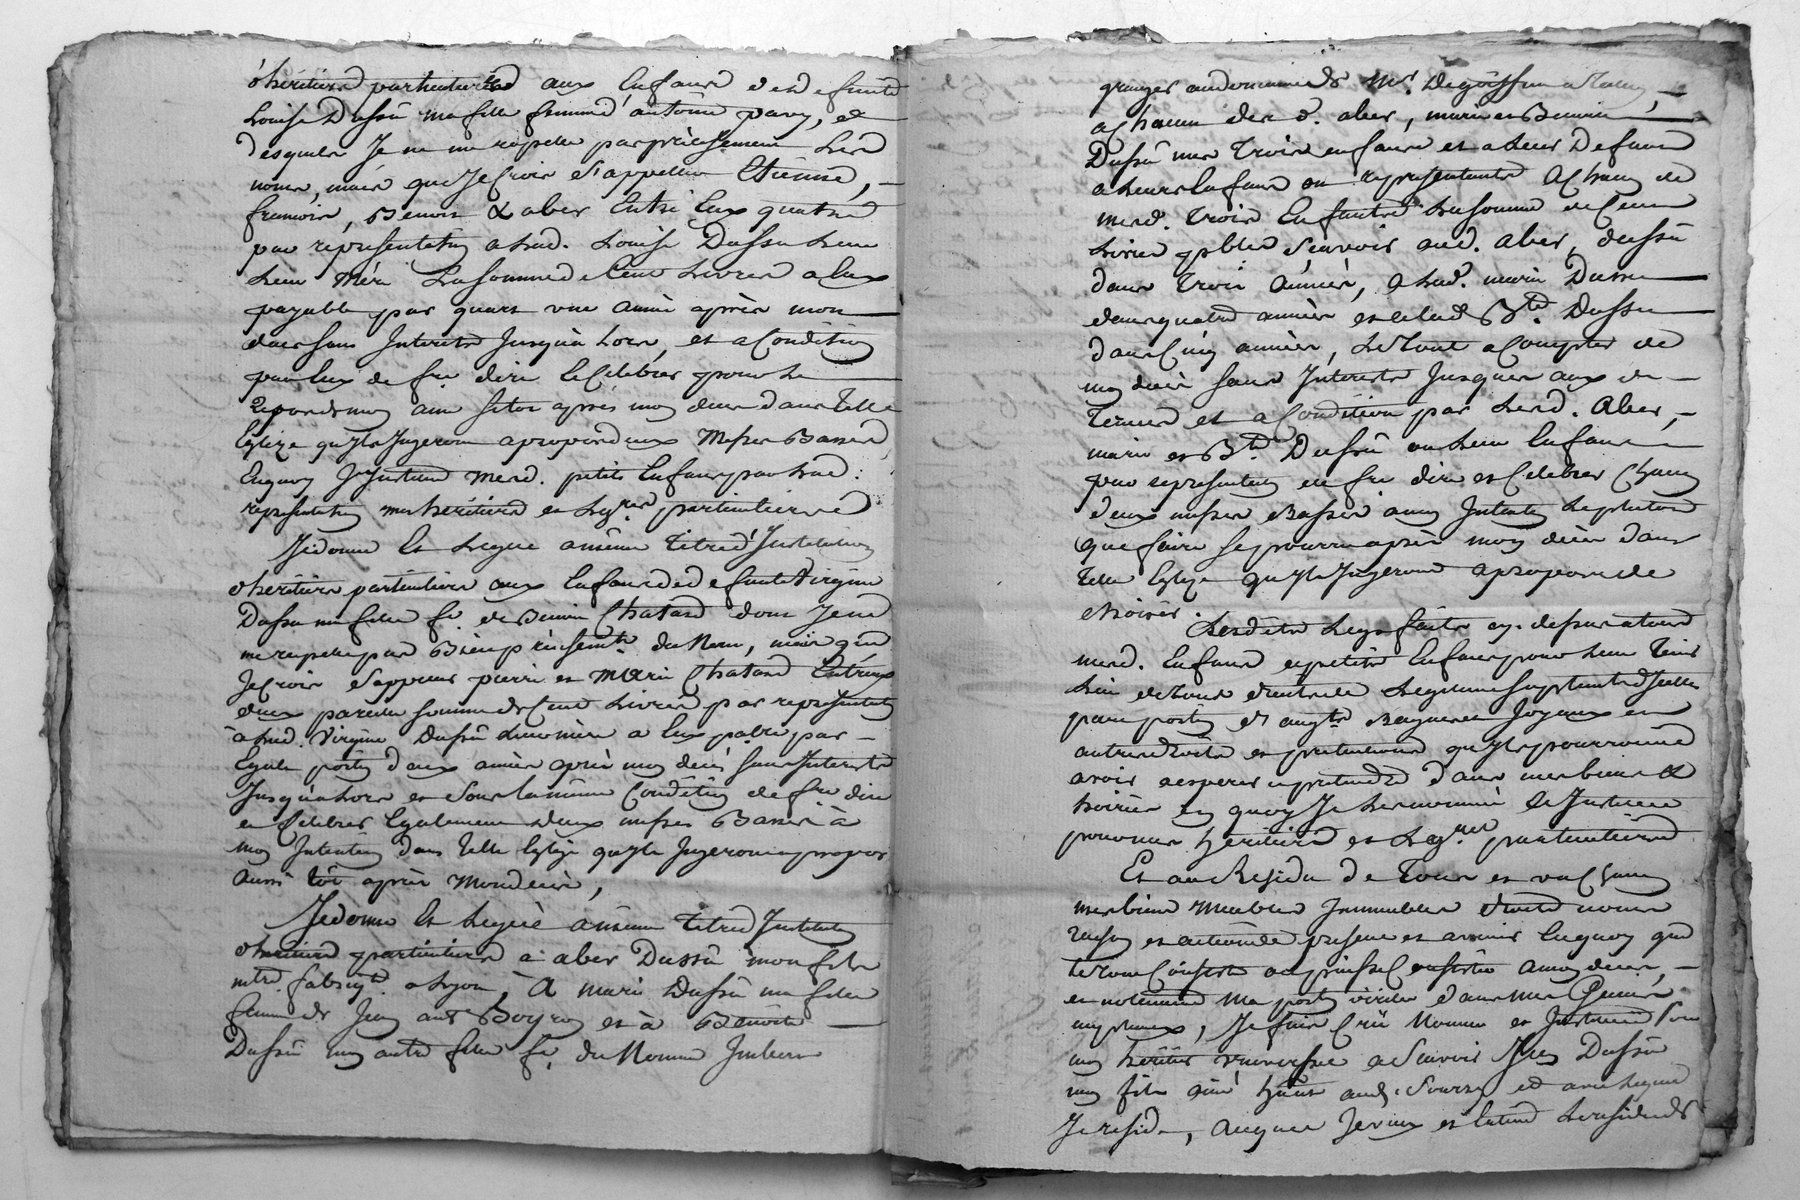 d'héritiers particuliers aux Enfans de defunte
Louise Dussû ma fille femme d'antoine pavy, et
desquels Je ne me rapelle pas précisement les
noms, mais que Je Crois s'appeller Etienne,
francois, Benoit & aber Entre Eux quatre
par representation a lad. Louise Dussu leur
leur Mére La somme de Cent Livres a Eux
payable par quart une année après mon
deces sans Interets Jusqu'à lors, et a Condition
par Eux de fre dire & Celebrer pour le
repos de mon ame sitot après mon deces dans telle
Eglize qu'ils Jugeront a propos deux Messes Basses
En quoy J'Jnstitue mesd. petits Enfans par lad.
representation mes héritiers et particuliers
Je donne Et Legue a même titre d'Jnstitution
d'héritiers particuliers aux Enfans de defunte Virgine
Dussu ma fille fe. de Chatard dont Je ne
me rapelle pas Bien précisemt. du Nom, mais que
Je Crois s'appeller pierre et Marie Chatard Entr'eux
deux pareille somme de Cent Livres par representation
à lad. Virgine Dussû leur mère a Eux pable. par
Egale portion deux années après mon décès sans Interets
Jusqu'a lors et sous la même Condition de fre dire
et Celebrer Egalement deux messes Basses à
mon Intention dans telle Eglize qu'ils Jugeront a propos
aussi tôt après mon decès,
Je donne Et Legue a même titre d'Jnstitution
d'héritiers particuliers à aber Dussû mon fils
mtre. fabriqt. a Lyon, A marie Dussû ma fille
femme de Jean et à Benoite
Dussû mon autre fille fe. du Nommé Jmbert
granger au domaine de Mr.
a Chacun des d. aber, marie et Benoite
Dussû mes trois enfans et a leur Defaut
a leurs Enfans ou representants a Chacun de
mesd. trois Enfants la somme de Cent
Livres pbles Scavoir aud. aber, dussû
dans trois années, a lad. marie Dussu
dans quatre années et a lad. Bte. Dussu
dans Cinq années, le tout a Compter de
mon decès sans Interets Jusques aux
termes et a Condition par lesd. Aber,
marie et Bte. Dussû ou leurs Enfans
par representation de fre dire et Celebrer Chacun
deux messes Basses a mon Intention le plutôt
que faire se pourra après mon decès dans
telle Eglize qu'ils Jugeront a propos de
choisir.
Lesdits Legs faits cy-dessus a tous
mesd. Enfans et petits Enfans pour leur tenir
lieu de tous droits de Legitime suplement d'Jcelle
part portion et Bagues Joyaux et
autres droits et pretentions qu'ils pourroient
avoir esperer et pretendre dans mes biens &
hoirie En quoy Je les nomme et Jnstitue
pour mes héritiers et particuliers
Et au Residu de Tous et un Chacun
mes biens Meubles Jmmeubles droits noms
raison et actions de present et avenir En quoy que
le tout Consiste ou puisse Consister a mon deces,
et notamment ma portion
Je fais Cré Nomme et Jnstitue
mon heritier universel a Scavoir Dussû
mon fils ainé hant. aud. et avec lequel
Je reside, Auquel Je veux et Entend